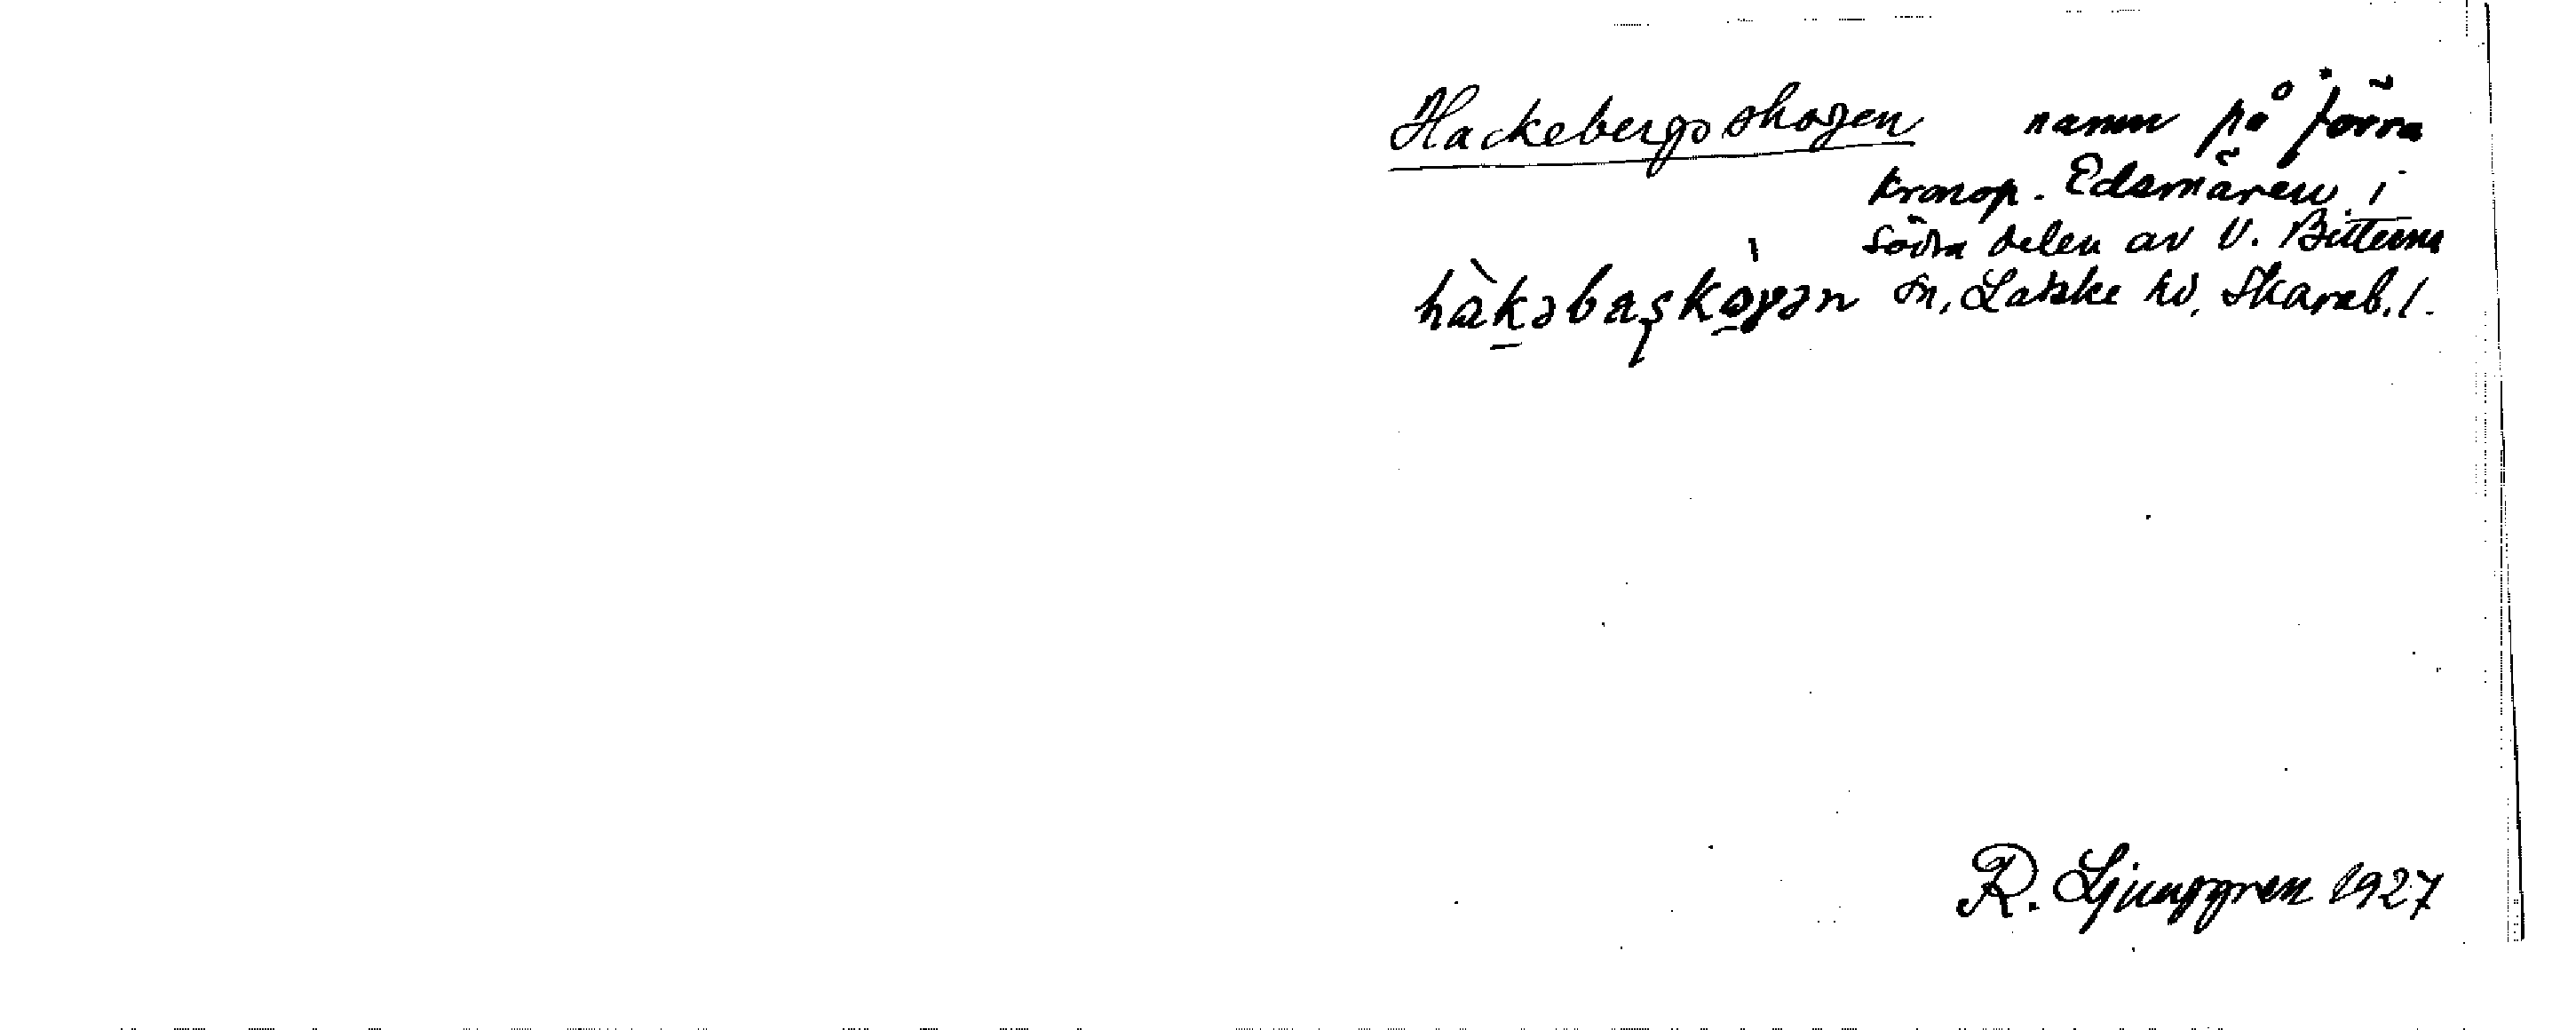 Hackebergsskogen namn på förra
kronop. Edsmären i
södra delen av V. Bitterna
hàkəbaşkò̀gən sn, Laske hd, Skarab. l.
R. Ljunggren 1927